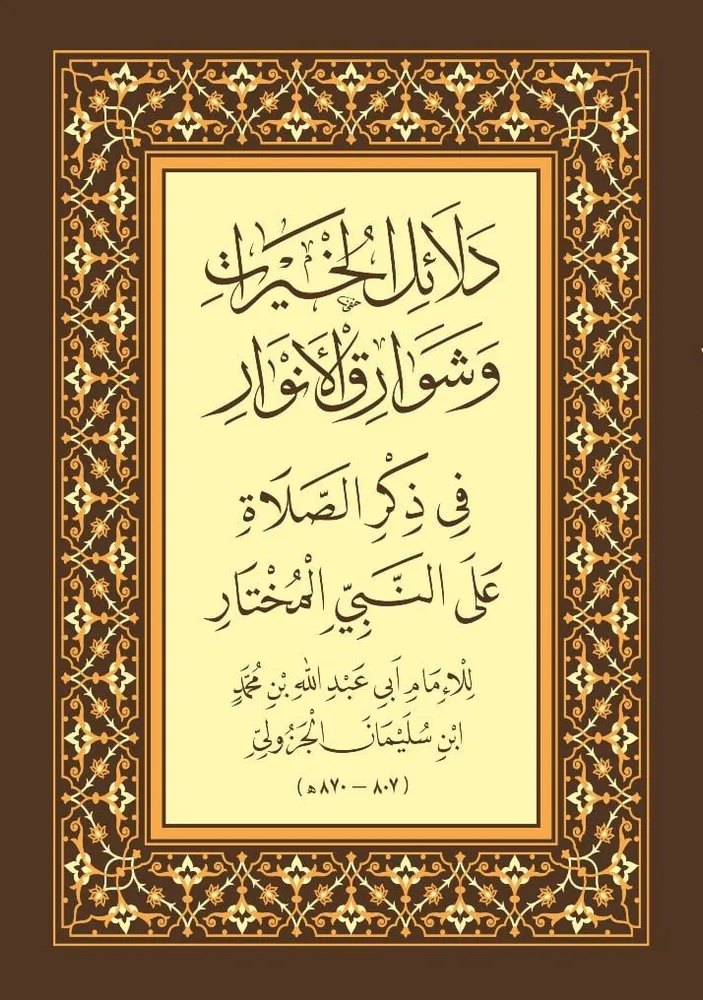 دَلَائِلُ الْخَيْرَاتِ
وَشَوَارِقُ الْأَنْوَارِ
فِي ذِكْرِ الصَّلَاةِ
عَلَى النَّبِيِّ الْمُخْتَارِ
لِلْإِمَامِ أَبِي عَبْدِ اللهِ بْنِ مُحَمَّدٍ
ابْنِ سُلَيْمَانَ الْجَزُولِيِّ
(٨٠٧ – ٨٧٠ هـ)